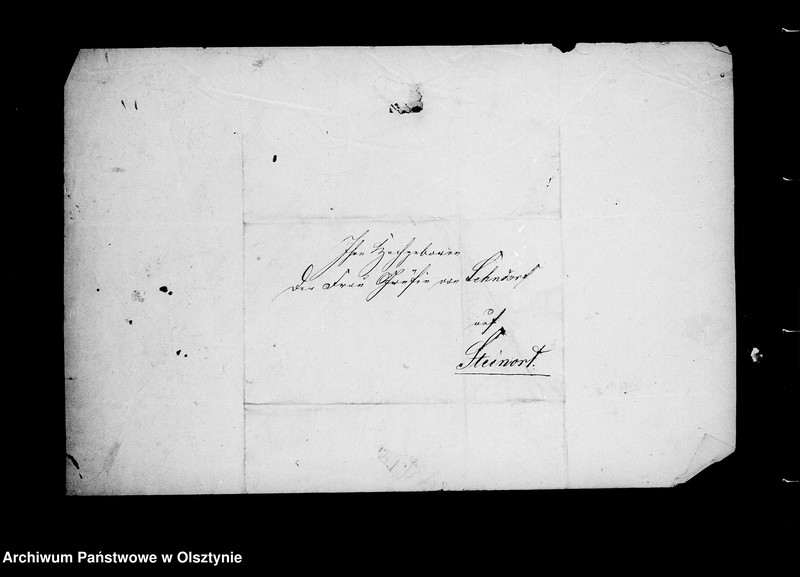 Ihro Hochgeboren
Der Frau Gräfin von Lehndorf
auf
Steinort.
Archiwum Państwowe w Olsztynie